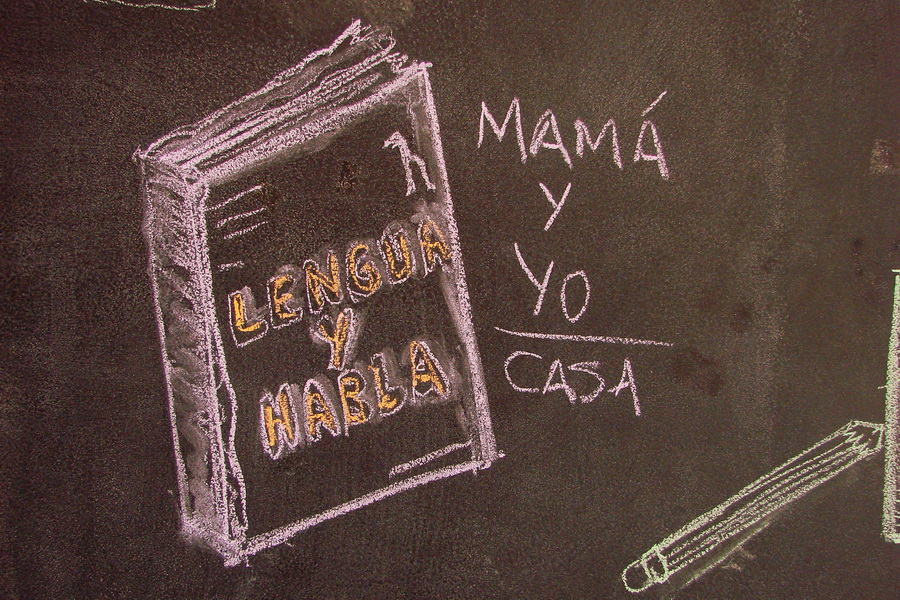 LENGUA
Y
HABLA
MAMÁ
Y
YO
CASA